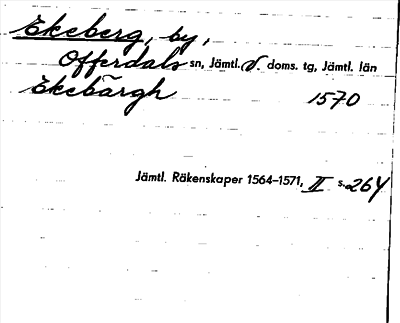 Ekeberg, by,
Offerdals sn, Jämtl. V. doms. tg, Jämtl. län
Ekebärgh 1570
Jämtl. Räkenskaper 1564–1571, II s. 264